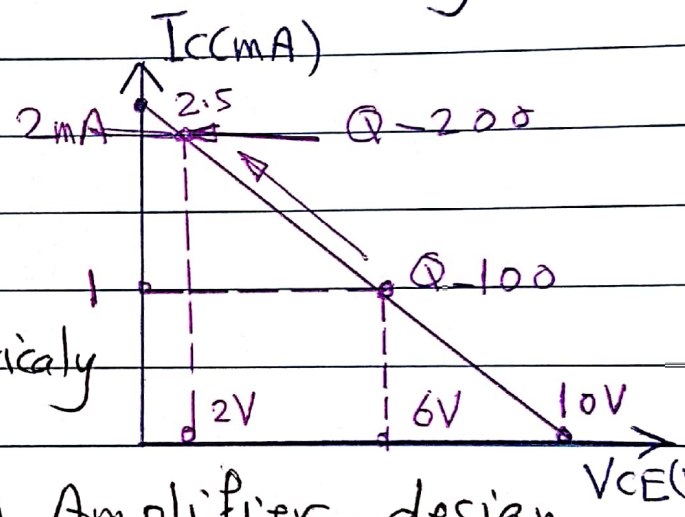 IC(mA)
2.5
2mA Q-200
Q-100
1
icaly
2V 6V 10V
VCE(
Amplifier design